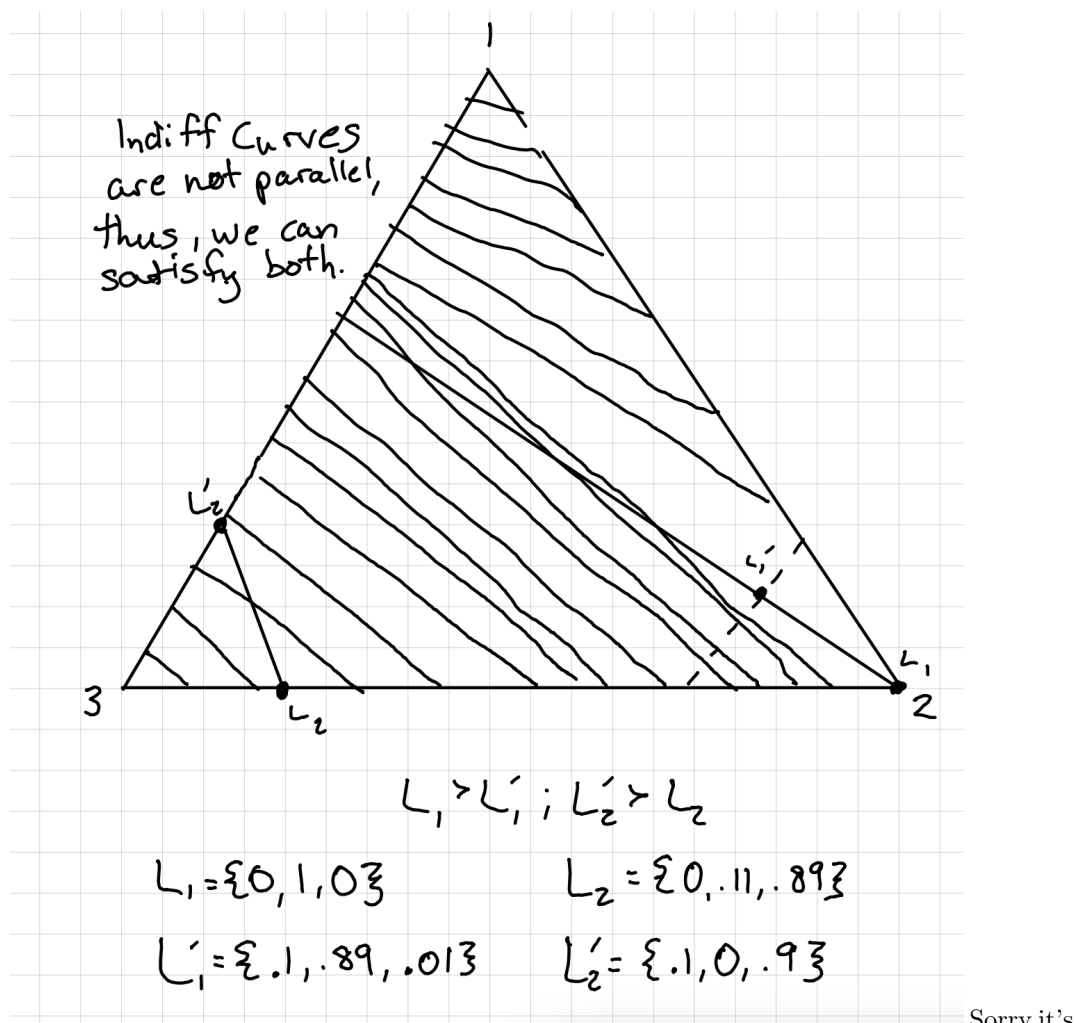 1
Indiff Curves
are not parallel,
thus, we can
satisfy both.
L₂'
L₁'
L₁
3
L₂
2
L₁ > L₁' ; L₂' > L₂
L₁ = {0, 1, 0}
L₂ = {0, .11, .89}
L₁' = {.1, .89, .01}
L₂' = {.1, 0, .9}
Sorry it's